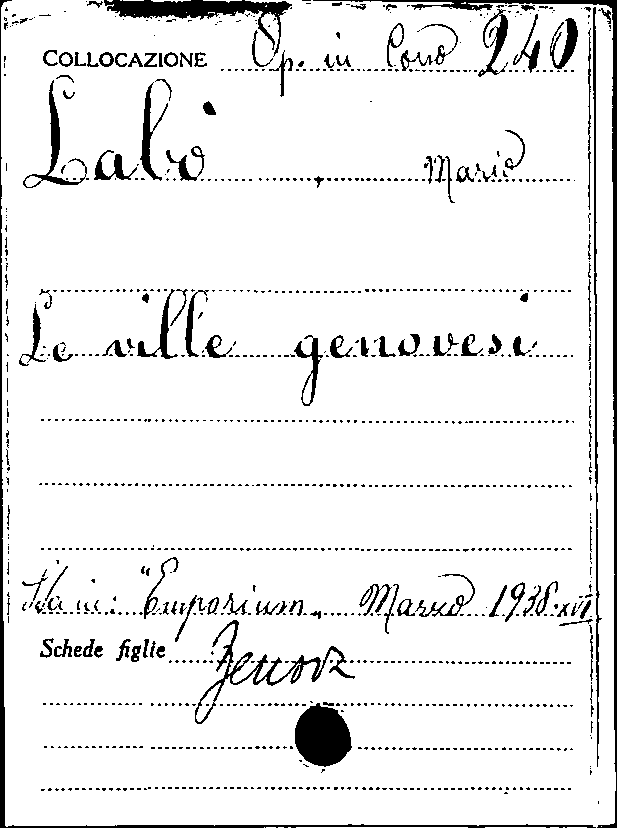 COLLOCAZIONE Op. in Corso 240
Labò, Mario
Le ville genovesi
Sta in: "Emporium" Marzo 1938-XVI
Schede figlie Genova